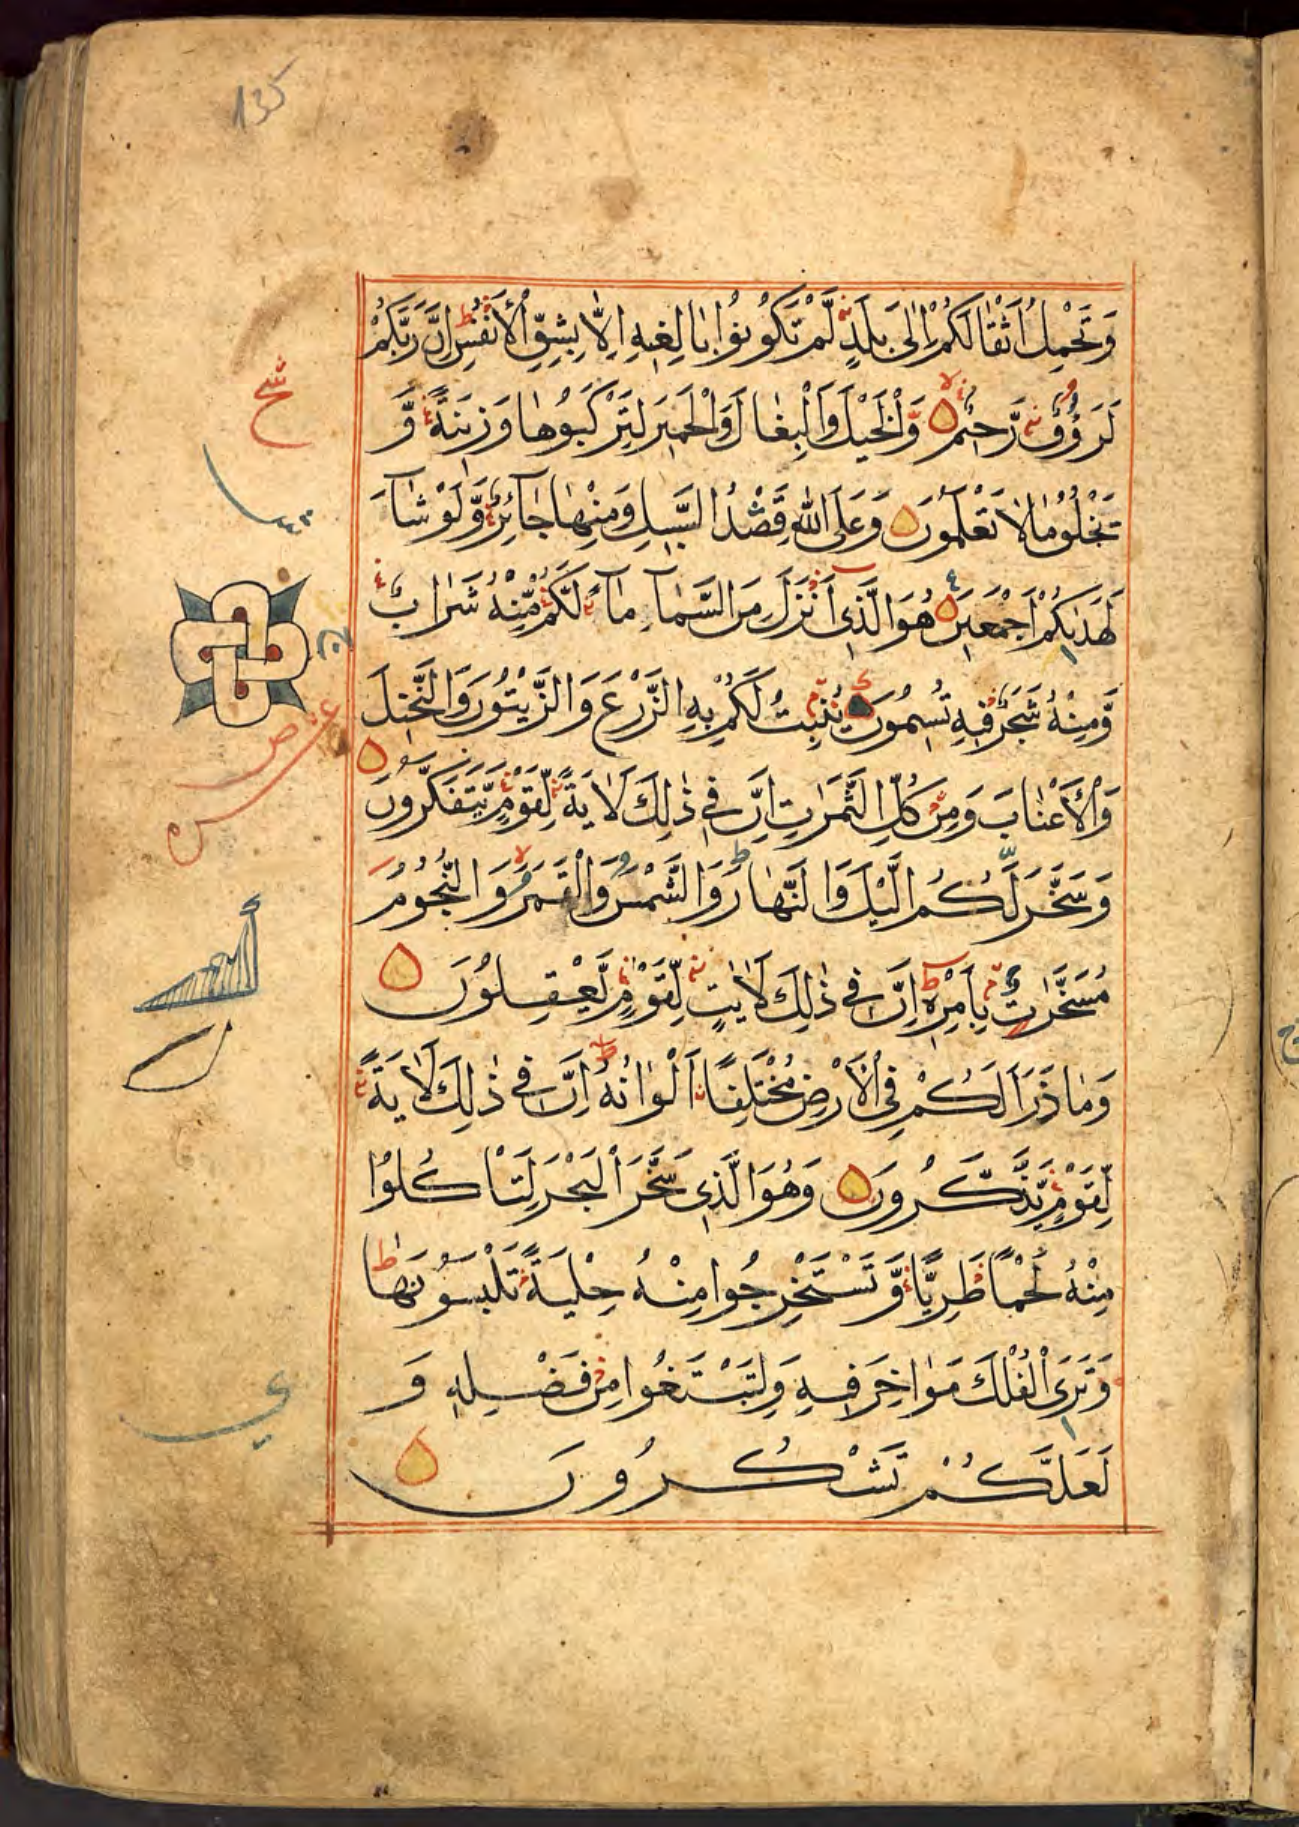 135
وَتَحْمِلُ اَثْقَالَكُمْ اِلٰى بَلَدٍ لَّمْ تَكُوْنُوْا بَالِغِيهِ اِلَّا بِشِقِّ الْاَنْفُسِ اِنَّ رَبَّكُمْ
لَرَؤُفٌ رَّحِيْمٌ وَّالْخَيْلَ وَالْبِغَالَ وَالْحَمِيْرَ لِتَرْكَبُوْهَا وَزِيْنَةً وَّ
يَخْلُقُ مَا لَا تَعْلَمُوْنَ وَعَلَى اللّٰهِ قَصْدُ السَّبِيْلِ وَمِنْهَا جَآئِرٌ وَّلَوْ شَآءَ
لَهَدٰىكُمْ اَجْمَعِيْنَ هُوَ الَّذِيْ اَنْزَلَ مِنَ السَّمَآءِ مَآءً لَّكُمْ مِّنْهُ شَرَابٌ
وَّمِنْهُ شَجَرٌ فِيْهِ تُسِيْمُوْنَ يُنْبِتُ لَكُمْ بِهِ الزَّرْعَ وَالزَّيْتُوْنَ وَالنَّخِيْلَ
وَالْاَعْنَابَ وَمِنْ كُلِّ الثَّمَرٰتِ اِنَّ فِيْ ذٰلِكَ لَاٰيَةً لِّقَوْمٍ يَّتَفَكَّرُوْنَ
وَسَخَّرَ لَكُمُ الَّيْلَ وَالنَّهَارَ وَالشَّمْسَ وَالْقَمَرَ وَالنُّجُوْمُ
مُسَخَّرٰتٌ بِاَمْرِهٖ اِنَّ فِيْ ذٰلِكَ لَاٰيٰتٍ لِّقَوْمٍ يَّعْقِلُوْنَ
وَمَا ذَرَاَ لَكُمْ فِي الْاَرْضِ مُخْتَلِفًا اَلْوَانُهٗ اِنَّ فِيْ ذٰلِكَ لَاٰيَةً
لِّقَوْمٍ يَّذَّكَّرُوْنَ وَهُوَ الَّذِيْ سَخَّرَ الْبَحْرَ لِتَاْكُلُوْا
مِنْهُ لَحْمًا طَرِيًّا وَّتَسْتَخْرِجُوا مِنْهُ حِلْيَةً تَلْبَسُوْنَهَا
وَتَرَى الْفُلْكَ مَوَاخِرَ فِيْهِ وَلِتَبْتَغُوا مِنْ فَضْلِهٖ وَ
لَعَلَّكُمْ تَشْكُرُوْنَ